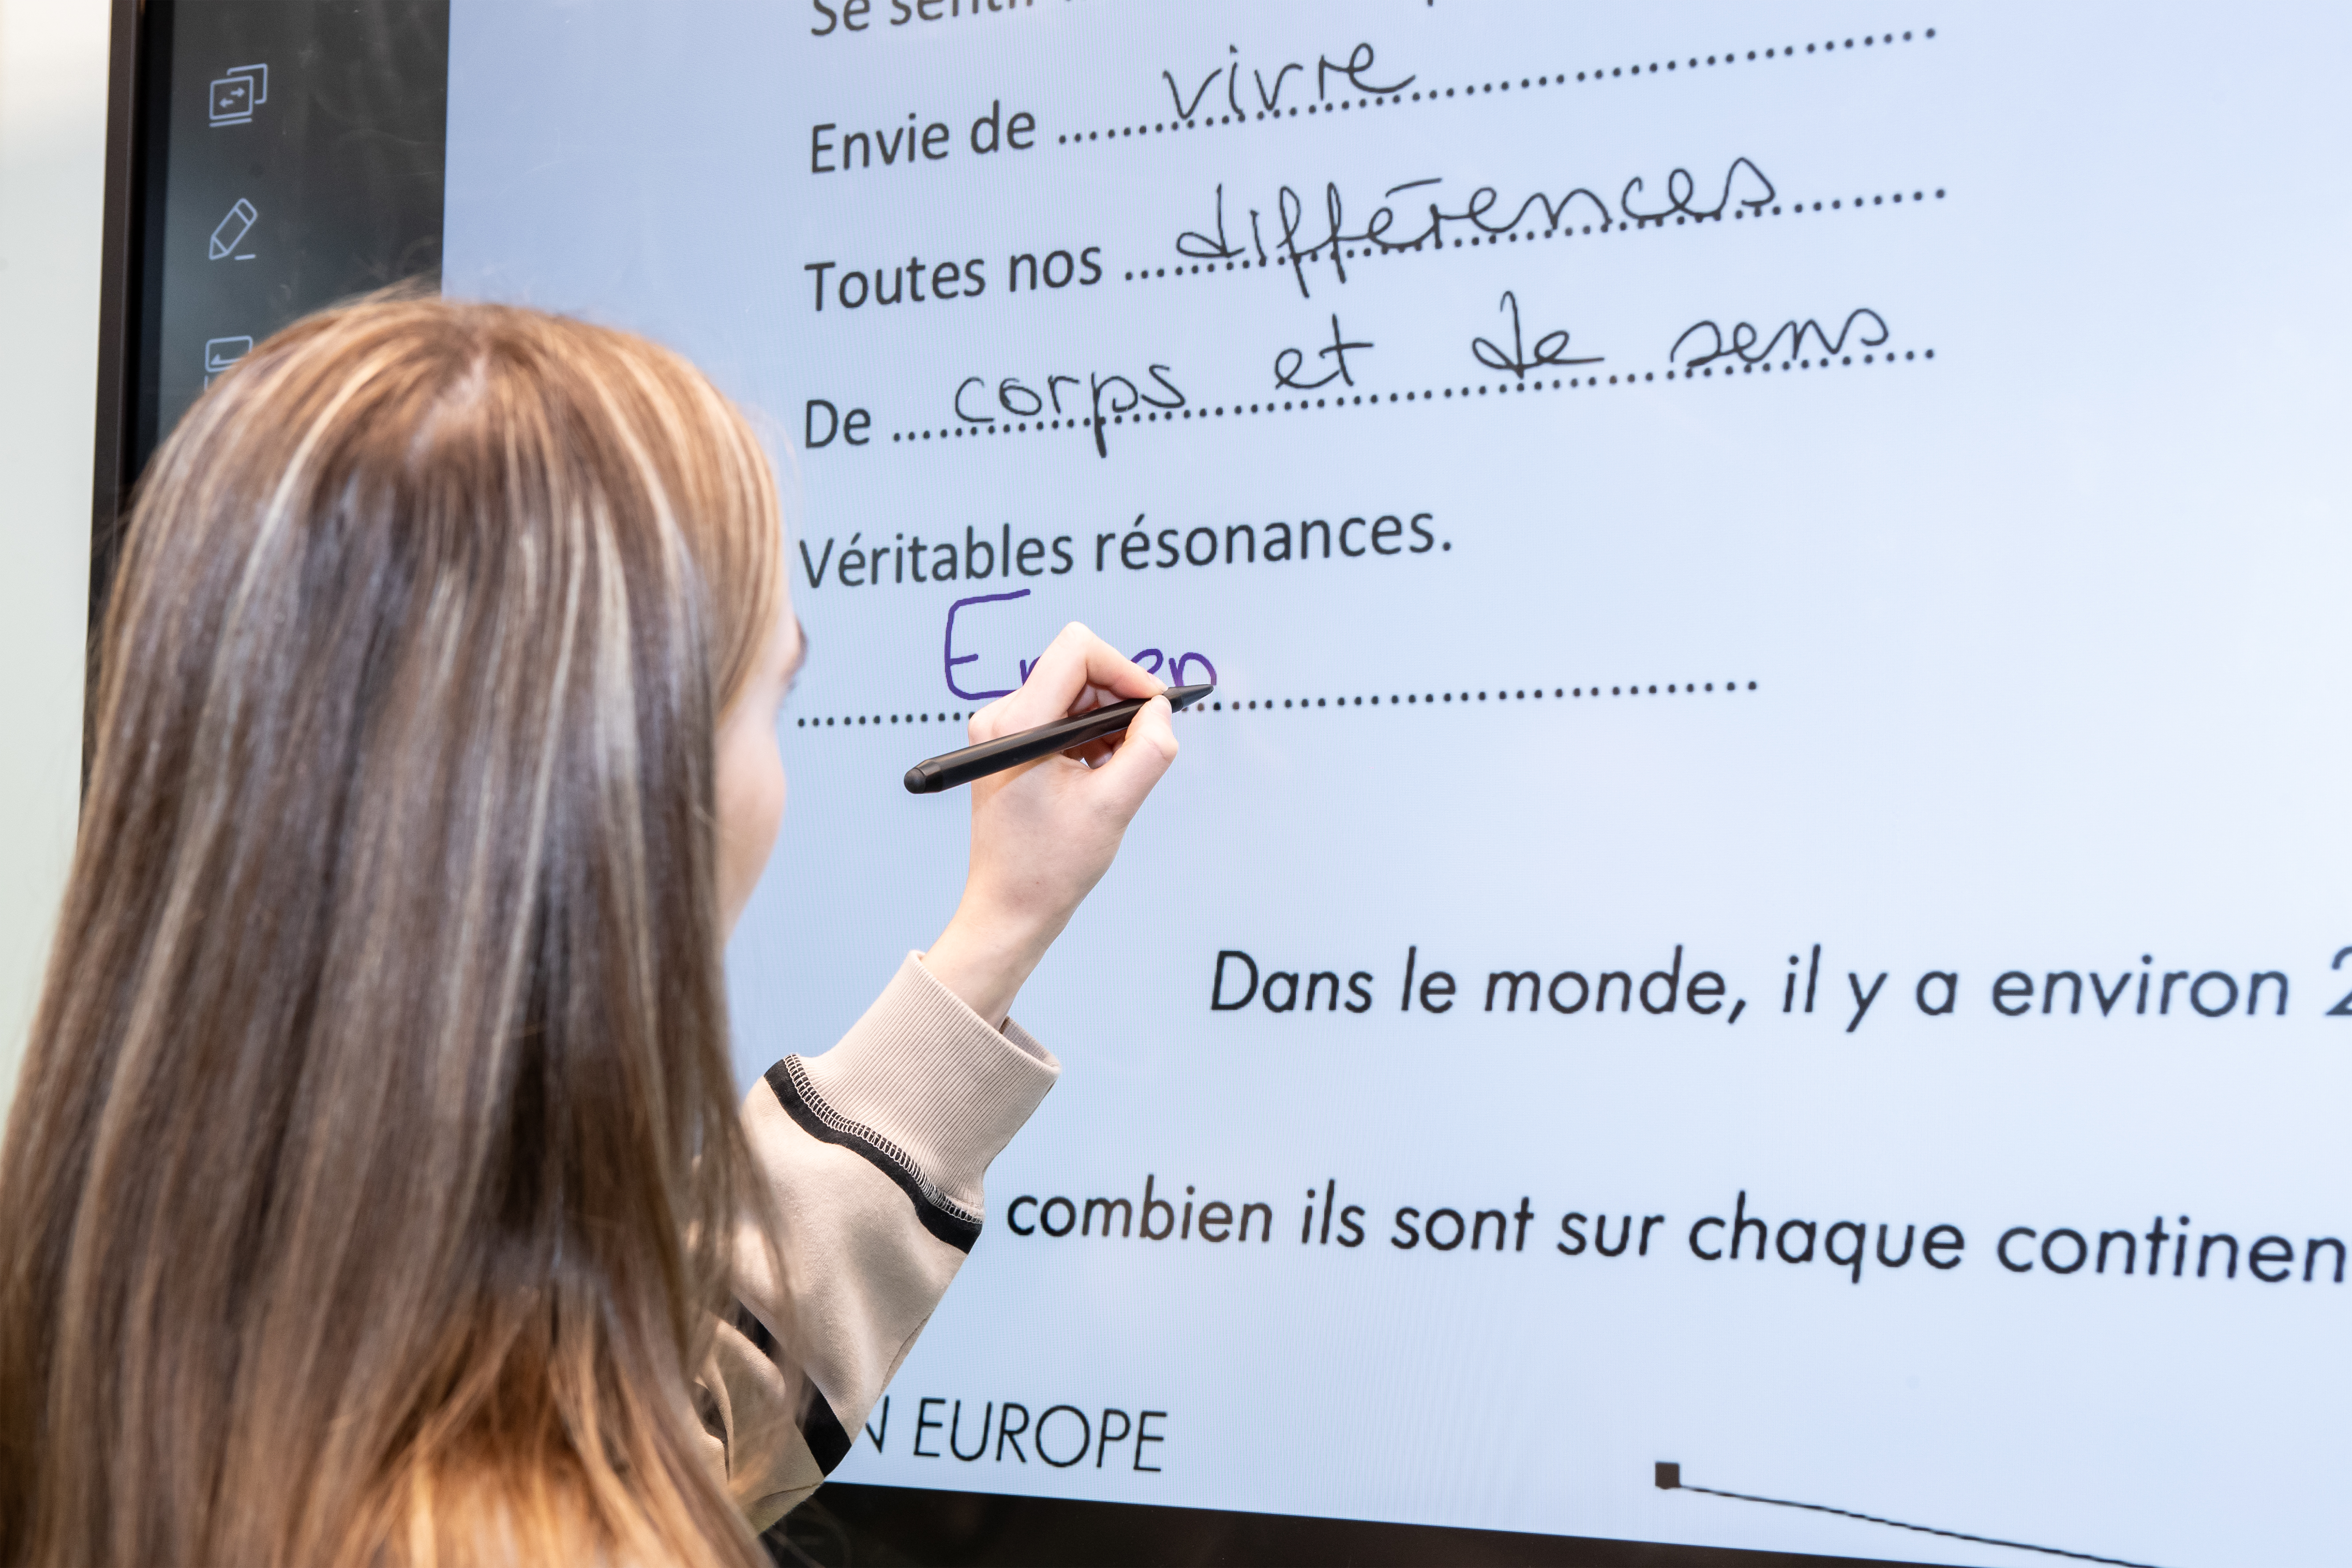 Se sentir
Envie de ............ vivre ............
Toutes nos ............ différences ............
De ............ corps et de sens ............
Véritables résonances.
Dans le monde, il y a environ 2
combien ils sont sur chaque continen
N EUROPE